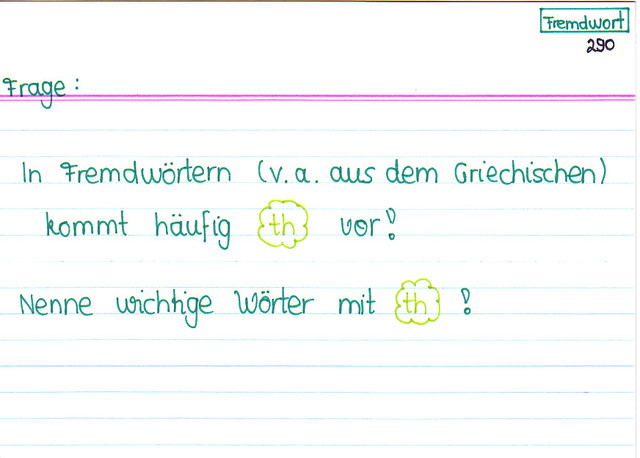 Fremdwort
290
Frage:
In Fremdwörtern (v.a. aus dem Griechischen)
kommt häufig th vor!
Nenne wichtige Wörter mit th!